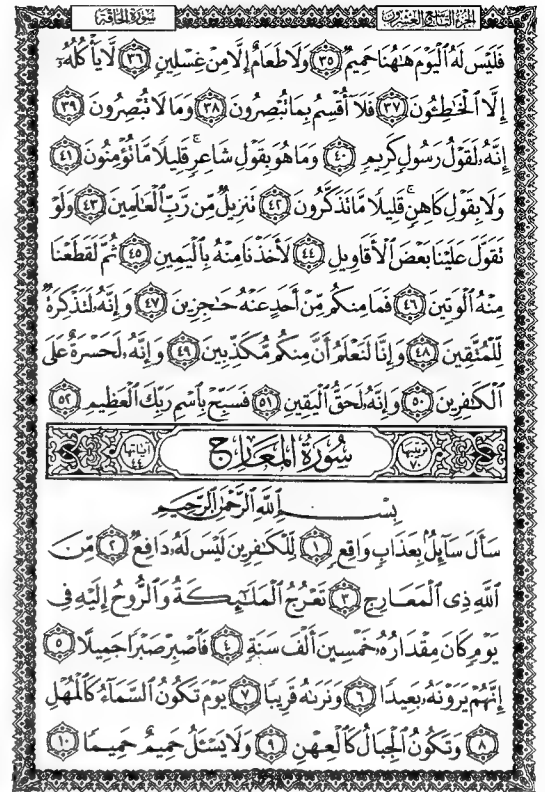 الجزء التاسع والعشرون سورة الحاقة
فَلَيْسَ لَهُ ٱلْيَوْمَ هَـٰهُنَا حَمِيمٌ ٣٥ وَلَا طَعَامٌ إِلَّا مِنْ غِسْلِينٍ ٣٦ لَّا يَأْكُلُهُۥٓ
إِلَّا ٱلْخَـٰطِـُٔونَ ٣٧ فَلَآ أُقْسِمُ بِمَا تُبْصِرُونَ ٣٨ وَمَا لَا تُبْصِرُونَ ٣٩
إِنَّهُۥ لَقَوْلُ رَسُولٍ كَرِيمٍ ٤٠ وَمَا هُوَ بِقَوْلِ شَاعِرٍ ۚ قَلِيلًا مَّا تُؤْمِنُونَ ٤١
وَلَا بِقَوْلِ كَاهِنٍ ۚ قَلِيلًا مَّا تَذَكَّرُونَ ٤٢ تَنزِيلٌ مِّن رَّبِّ ٱلْعَـٰلَمِينَ ٤٣ وَلَوْ
تَقَوَّلَ عَلَيْنَا بَعْضَ ٱلْأَقَاوِيلِ ٤٤ لَأَخَذْنَا مِنْهُ بِٱلْيَمِينِ ٤٥ ثُمَّ لَقَطَعْنَا
مِنْهُ ٱلْوَتِينَ ٤٦ فَمَا مِنكُم مِّنْ أَحَدٍ عَنْهُ حَـٰجِزِينَ ٤٧ وَإِنَّهُۥ لَتَذْكِرَةٌ
لِّلْمُتَّقِينَ ٤٨ وَإِنَّا لَنَعْلَمُ أَنَّ مِنكُم مُّكَذِّبِينَ ٤٩ وَإِنَّهُۥ لَحَسْرَةٌ عَلَى
ٱلْكَـٰفِرِينَ ٥٠ وَإِنَّهُۥ لَحَقُّ ٱلْيَقِينِ ٥١ فَسَبِّحْ بِٱسْمِ رَبِّكَ ٱلْعَظِيمِ ٥٢
ترتيبها ٧٠ سُورَةُ المَعَارِجِ آياتها ٤٤
بِسْمِ ٱللَّهِ ٱلرَّحْمَـٰنِ ٱلرَّحِيمِ
سَأَلَ سَآئِلٌۢ بِعَذَابٍ وَاقِعٍ ١ لِّلْكَـٰفِرِينَ لَيْسَ لَهُۥ دَافِعٌ ٢ مِّنَ
ٱللَّهِ ذِى ٱلْمَعَارِجِ ٣ تَعْرُجُ ٱلْمَلَـٰٓئِكَةُ وَٱلرُّوحُ إِلَيْهِ فِى
يَوْمٍ كَانَ مِقْدَارُهُۥ خَمْسِينَ أَلْفَ سَنَةٍ ٤ فَٱصْبِرْ صَبْرًا جَمِيلًا ٥
إِنَّهُمْ يَرَوْنَهُۥ بَعِيدًا ٦ وَنَرَىٰهُ قَرِيبًا ٧ يَوْمَ تَكُونُ ٱلسَّمَآءُ كَٱلْمُهْلِ
٨ وَتَكُونُ ٱلْجِبَالُ كَٱلْعِهْنِ ٩ وَلَا يَسْـَٔلُ حَمِيمٌ حَمِيمًا ١٠